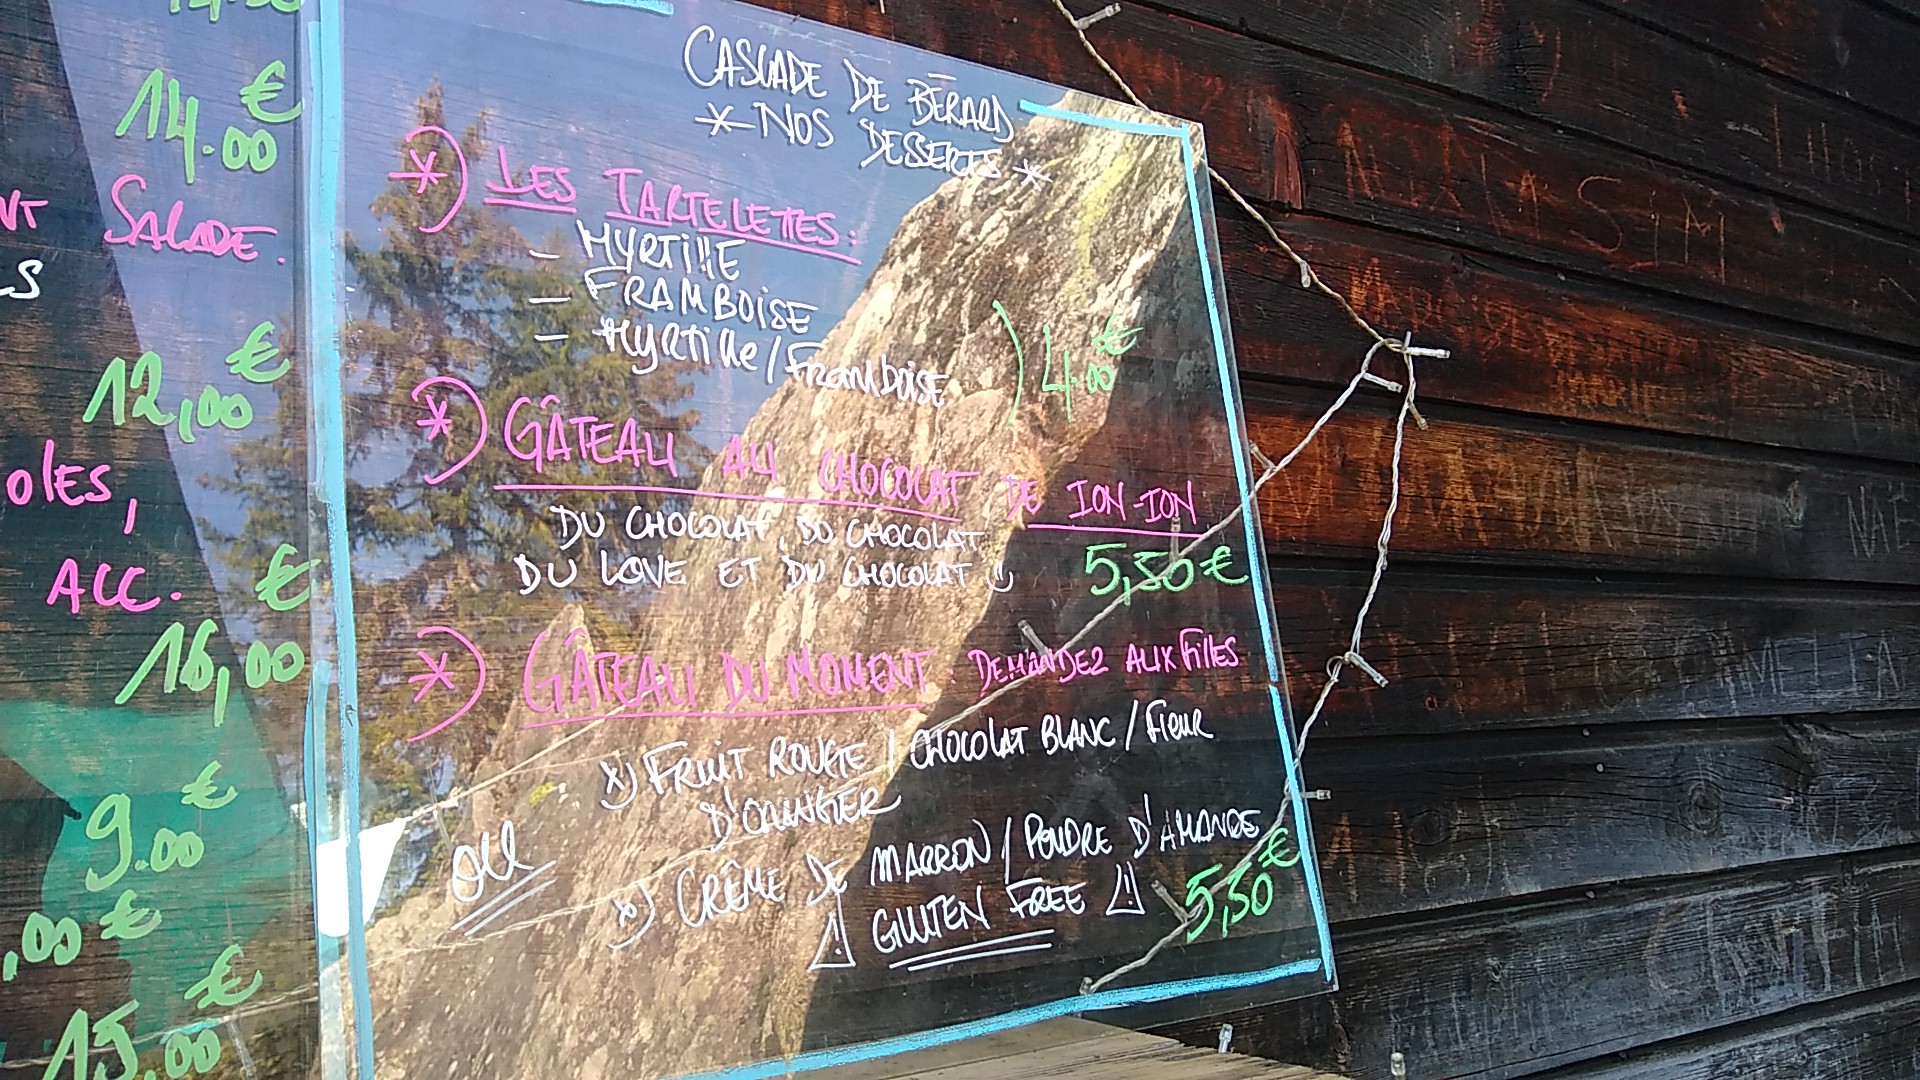 14.00 €
NT SALADE.
S
12,00 €
OLES,
ACC. €
16,00
9.00 €
,00 €
15,00 €
CASCADE DE BÉRARD
* NOS DESSERTS *
*) LES TARTELETTES:
- MYRTILLE
- FRAMBOISE
- MYRTILLE/FRAMBOISE
) 4.00 €
*) GÂTEAU AU CHOCOLAT DE ION-ION
DU CHOCOLAT, DU CHOCOLAT
DU LOVE ET DU CHOCOLAT !!
5,50 €
*) GÂTEAU DU MOMENT. DEMANDEZ AUX FILLES
*) FRUIT ROUGE / CHOCOLAT BLANC / FLEUR
D'ORANGER
OU
*) CRÈME DE MARRON / POUDRE D'AMANDE
⚠ GLUTEN FREE ⚠ 5,50 €
SIM